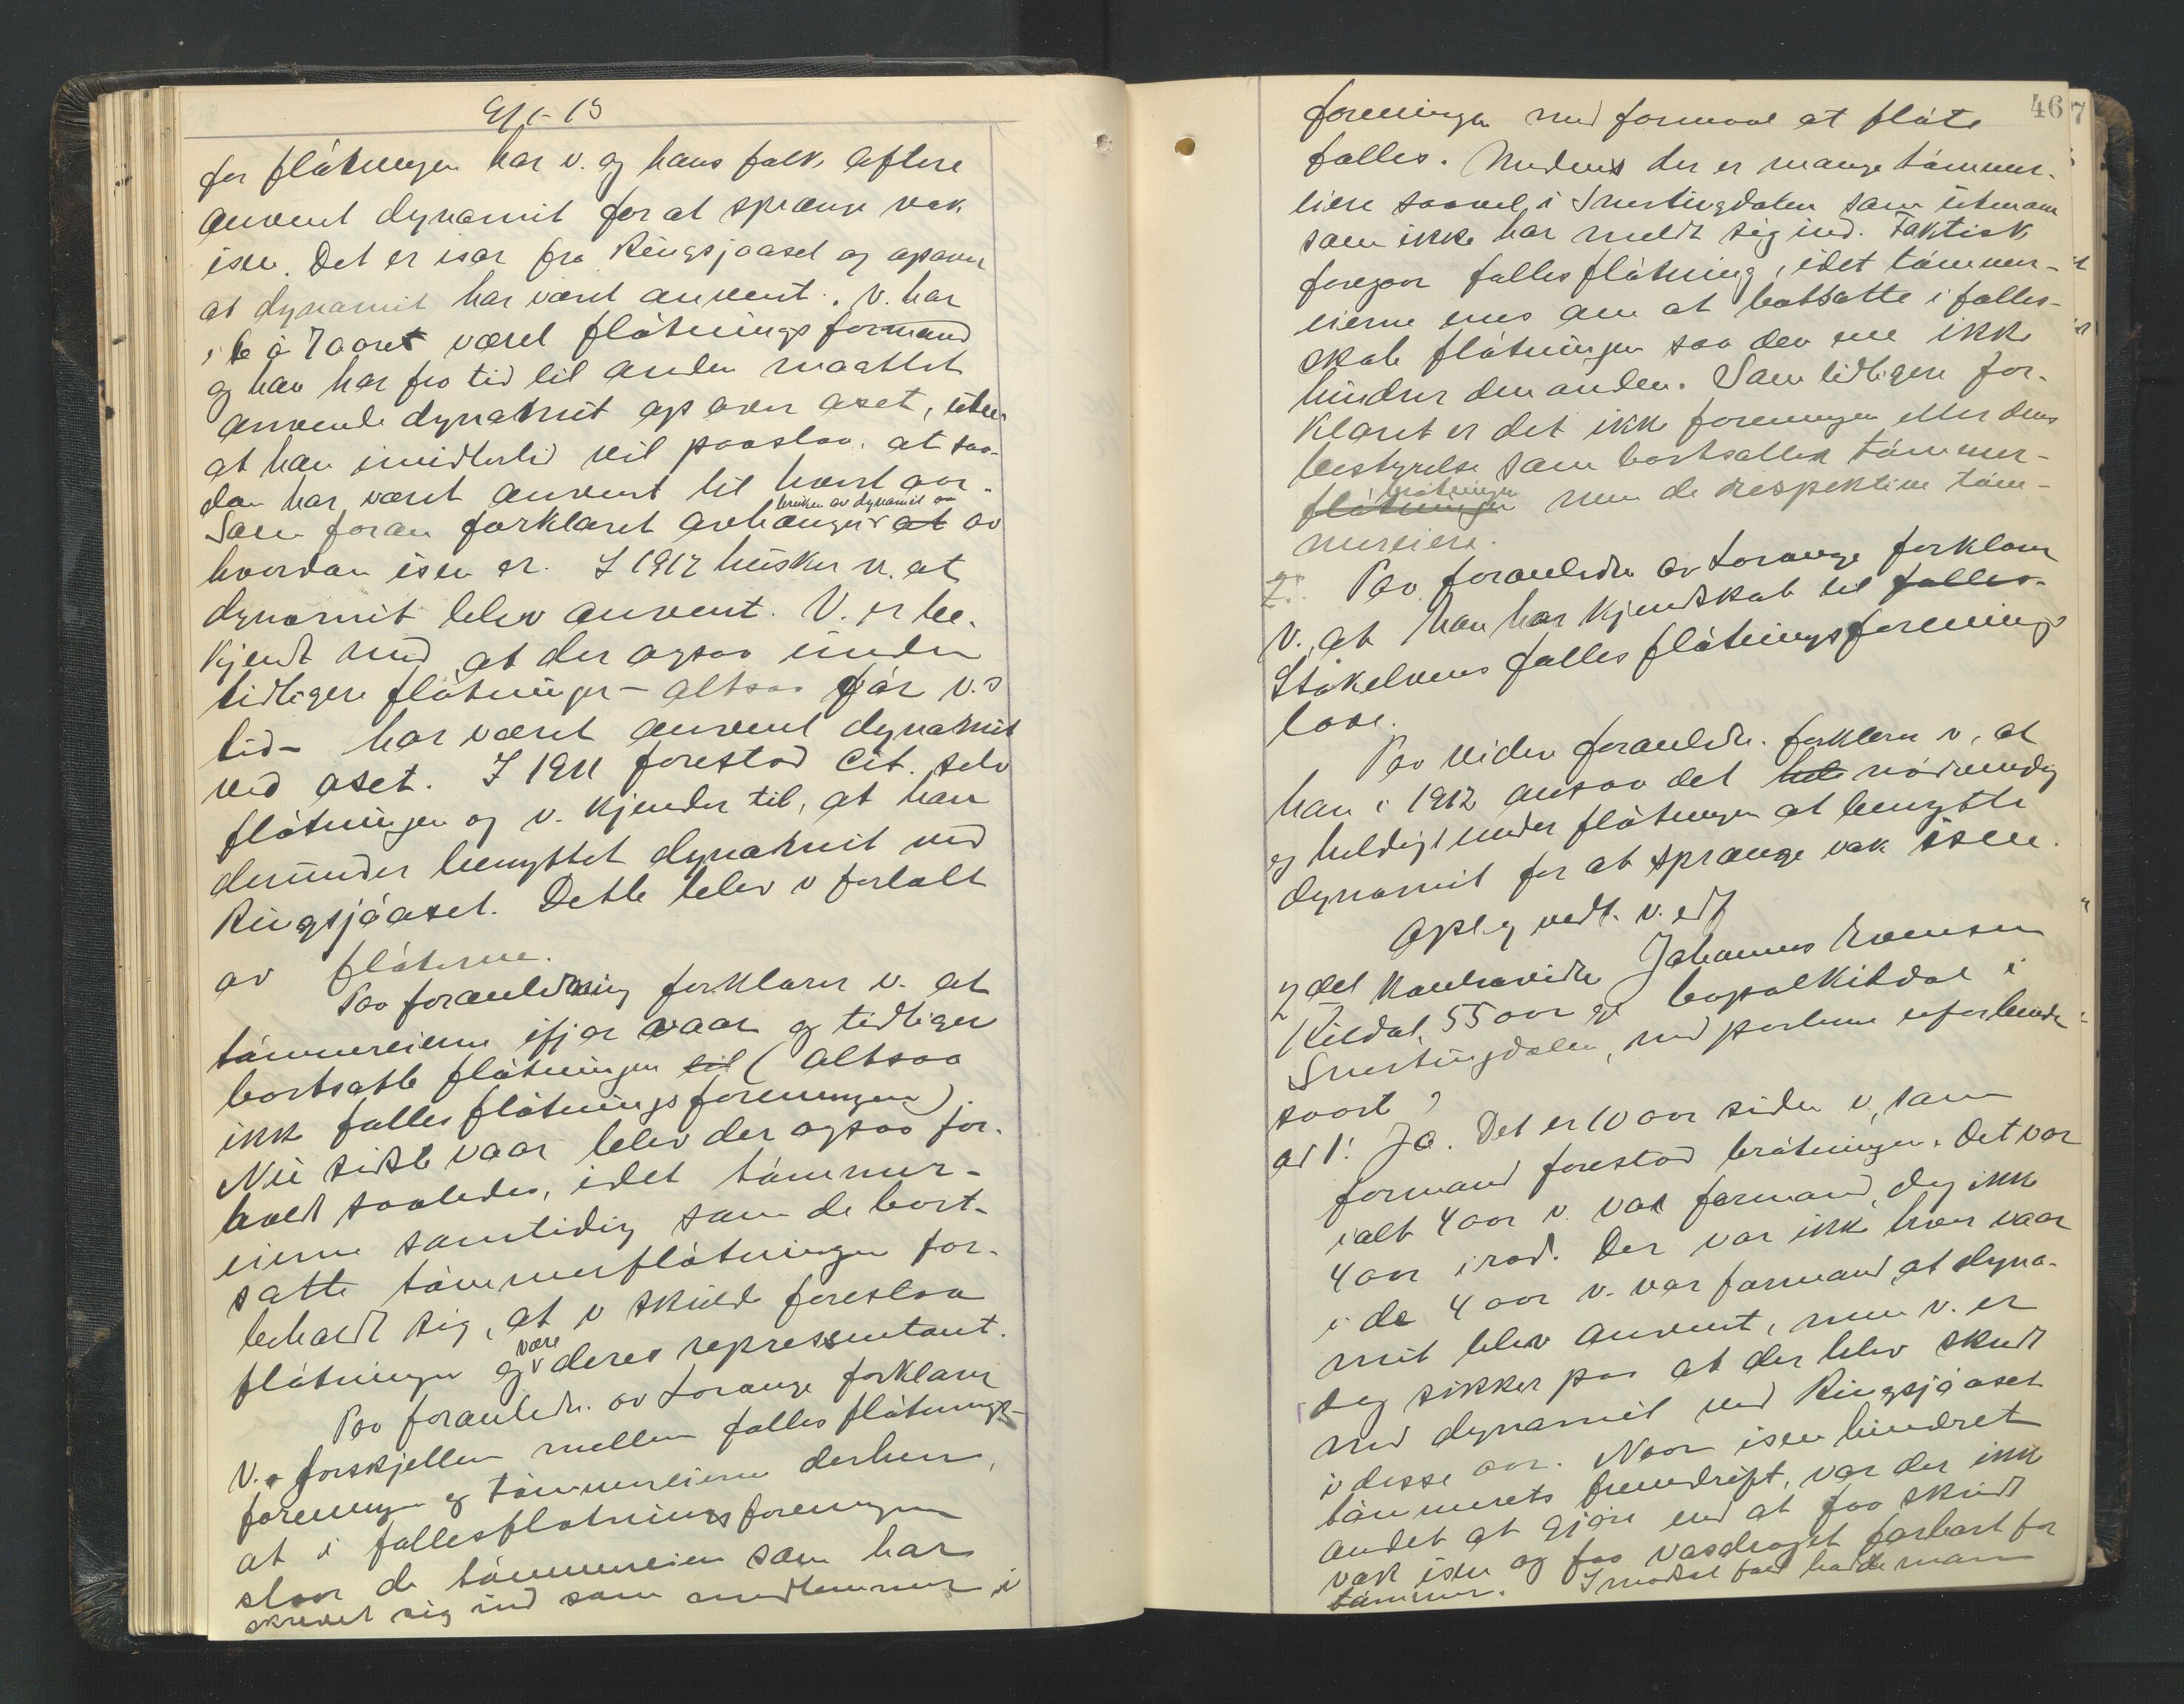 9/1-15
for fløtningen har v. og hans folk oftere
anvent dynamit for at sprænge væk
isen. Det er især fra Ringsjøaset og opover
at dynamit har været anvent. V. har
i 6 à 7 aaret været fløtningsformand
og han har fra tid til anden maattet
anvende dynamit op over aset, uten
at han imidlertid vil paastaa, at saa-
dan har været anvent til hvert aar.
bruken av dynamit
Som foran forklaret avhænger at av
hvordan isen er. I 1912 husker v. at
dynamit blev anvent. V. er be-
kjendt med at der ogsaa under
tidligere fløtninger – altsaa før v.s
tid – har været anvent dynamit
ved aset. I 1911 forestod Cit. selv
fløtningen og v. kjender til, at han
derunder benyttet dynamit ved
Ringsjøaset. Dette blev v fortalt
av fløterne.
Paa foranledning forklarer v. at
tømmereierne ifjor vaar og tidligere
bortsatte fløtningen til (altsaa
ikke fællesfløtningsforeningen).
Nu sidste vaar blev der ogsaa for-
holdt saaledes, idet tømmer-
eierne samtidig som de bort-
satte tømmerfløtningen for-
beholdt sig, at v skulde forestaa
være
fløtningen og deres repressentant.
Paa foranledn. av Lorange forklarer
V. forskjellen mellem fælles fløtnings-
foreningen og tømmereierne derhen,
at i fællesfløtningsforeningen
staar de tømmereiere som har
skrevet sig ind som medlemmer i
46
7
foreningen med formaal at fløte
fælles. Medens der er mange tømmer-
eiere saavel i Snertingdalen som utenom
som ikke har meldt sig ind. Faktisk
foregaar fællesfløtning, idet tømmer-
eierne enes om at bortsætte i fælles-
skab fløtningen saa den ene ikke
hindrer den anden. Som tidligere for-
klaret er det ikke foreningen eller dens
bestyrelse som bortsætter tømmer-
brøtningen
fløtningen men de respektive tøm-
mereiere.
2: Paa foranledn av Lorange forklarer
V. at han har kjendskab til fælles-
Stokelvens fælles fløtningsforenings
love.
Paa videre foranledn. forklarer v, at
han i 1912 ansaa det nødvendig
og heldigt under fløtningen at benytte
dynamit for at sprænge væk isen.
Opl. og vedt. v. edf
2det Kontravidne Johannes Evensen
Kildal, 55 aar g. bopæl Kildal i
Snertingdalen, med parterne uforbunde-
saart?
ad 1: Ja. Det er 10 aar siden v, som
formand forestod brøtningen. Det var
ialt 4 aar v. var formand, dog ikke
4 aar i rad. Der var ikke hver vaar
i de 4 aar v. var formand, at dyna-
mit blev anvent, men v. er
dog sikker paa at der blev skudt
med dynamit ved Ringsjøaset
i disse aar. Naar isen hindret
tømmerets fremdrift, var der ikke
andet at gjøre end at faa skudt
væk isen og faa vasdraget farbart for
tømmer. I motsat fald hadde man